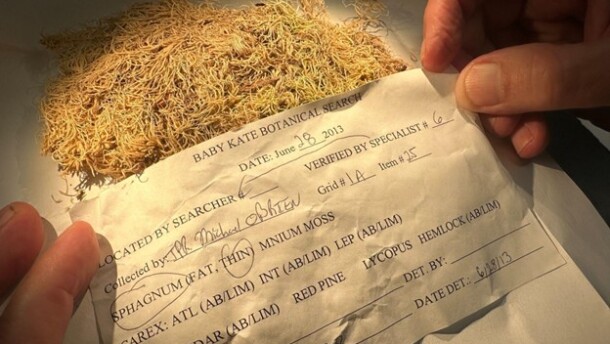 BABY KATE BOTANICAL SEARCH
DATE: June 28 2013
LOCATED BY SEARCHER VERIFIED BY SPECIALIST # 6
Collected by: Michael O'BRIEN Grid # 1A Item # 25
SPHAGNUM (FAT, THIN) MNIUM MOSS
CAREX: ATL (AB/LIM) INT (AB/LIM) LEP (AB/LIM)
DAR (AB/LIM) RED PINE LYCOPUS HEMLOCK (AB/LIM)
DET. BY:
DATE DET.: 6/28/13